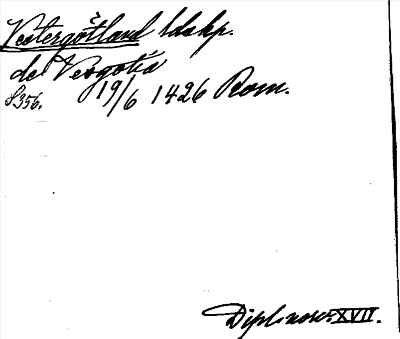 Vestergötland ldskp.
de Vesgotia
S. 356. 19/6 1426 Rom.
Dipl. norv. XVII.